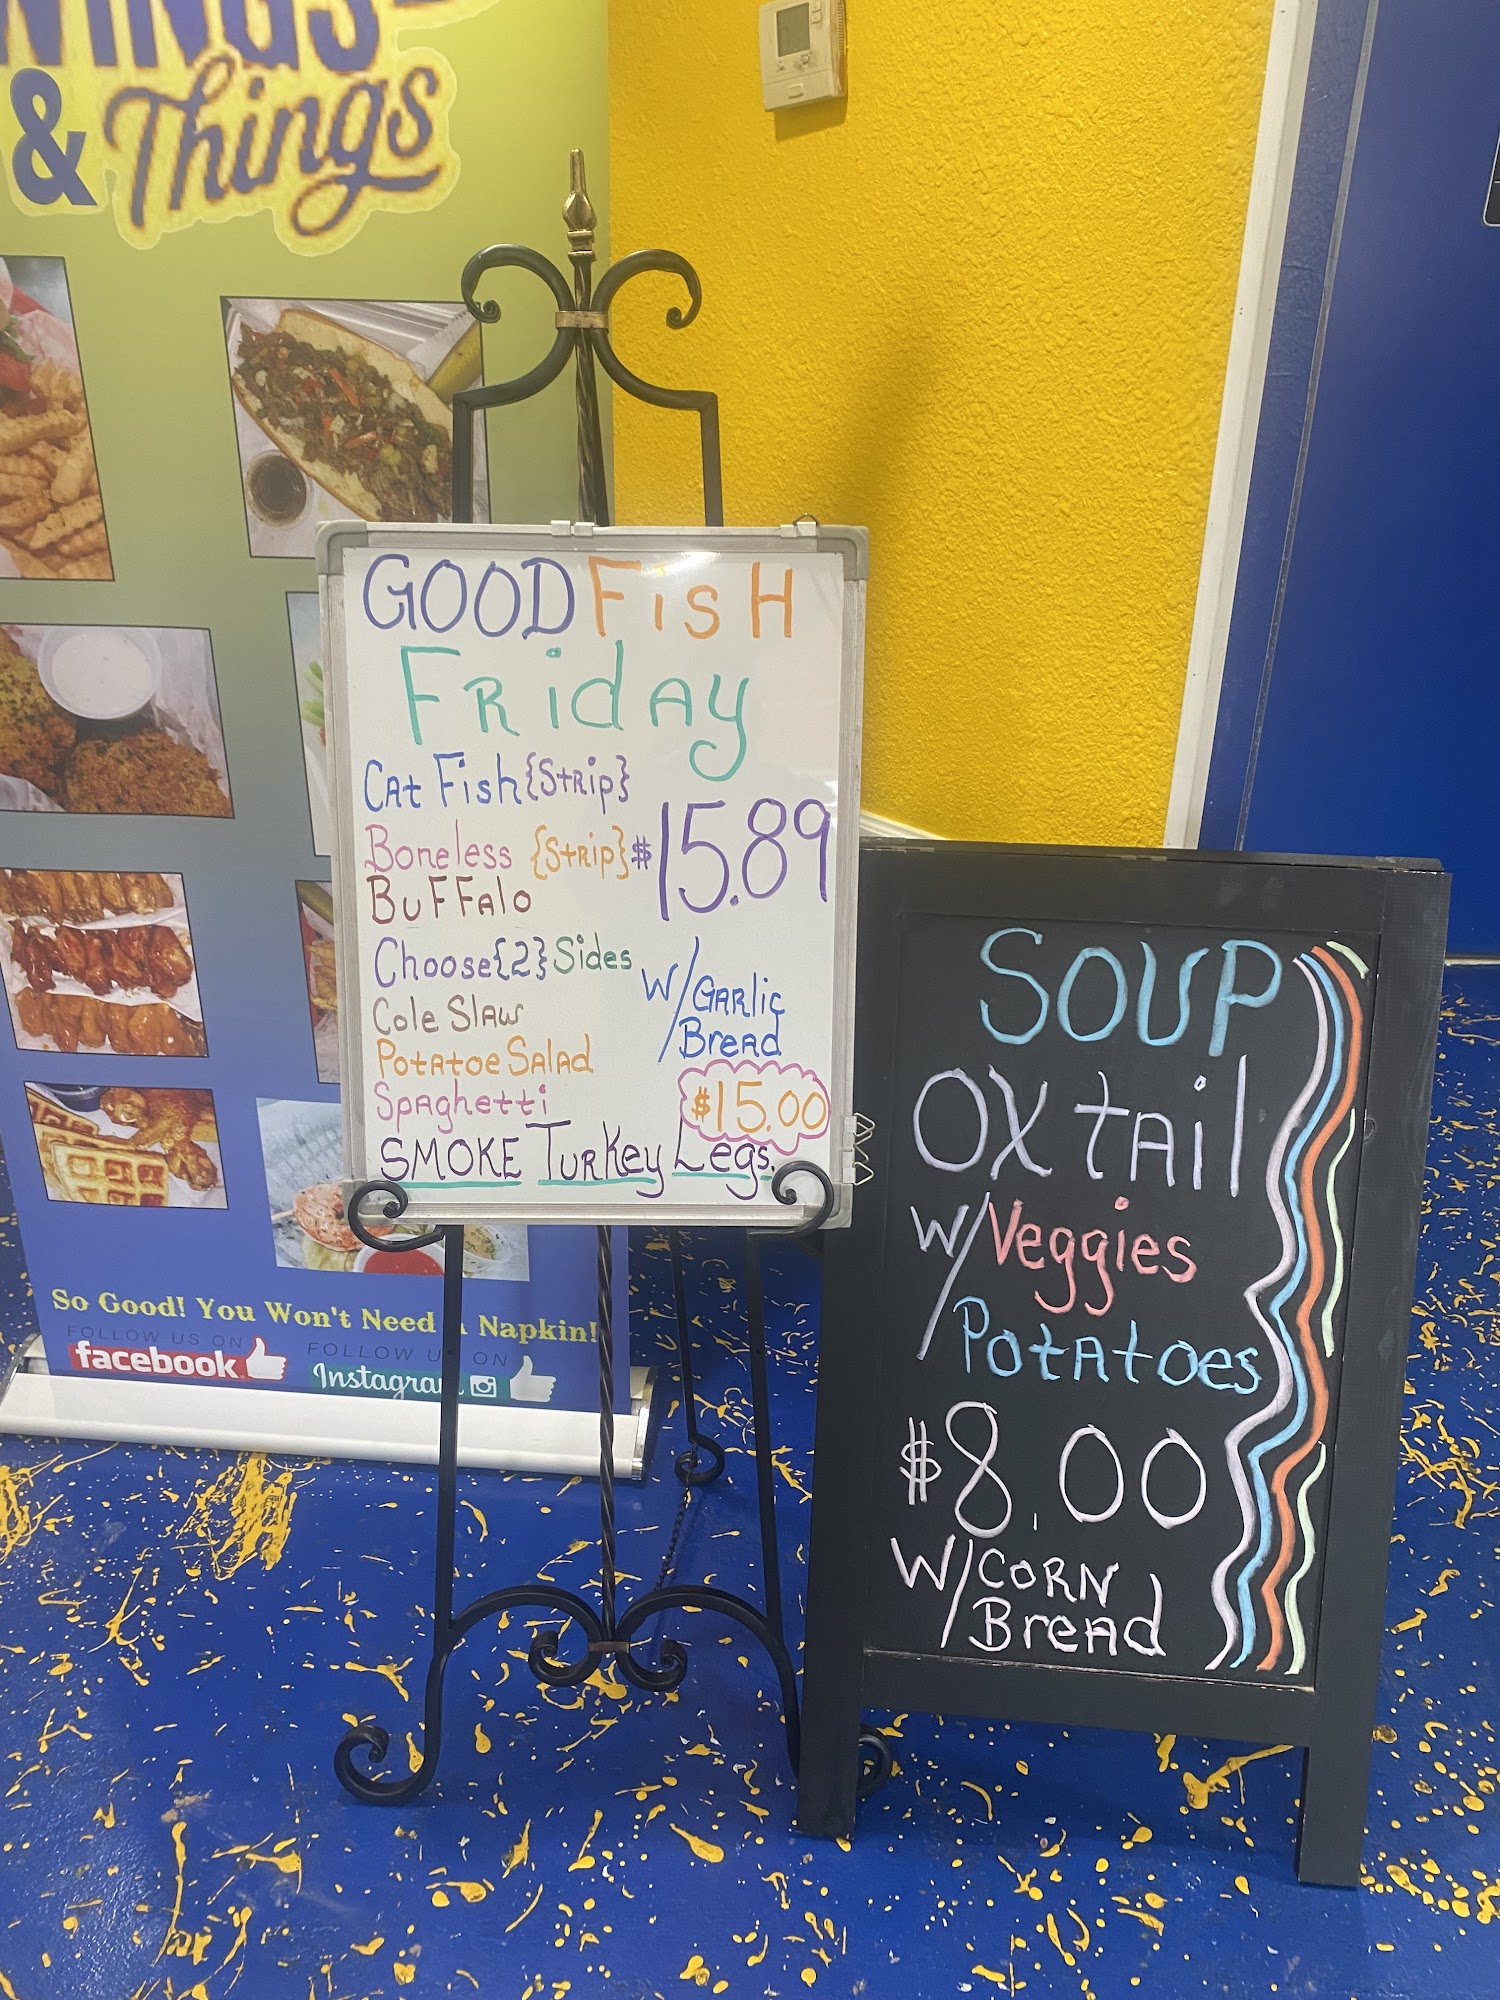 & Things
GOOD FisH
FRidAy
CAt Fish {StRip}
Boneless {StRip} $15.89
BuFFAlo
Choose {2} Sides
W/ GARlic
BreAd
Cole SlAw
PotAtoe SalAd
SpAghetti
$15.00
SMOKE TuRKey Legs.
SOUP
OX tAil
W/ Veggies
PotAtoes
$8.00
W/ CORN
BreAd
So Good! You Won't Need Napkin!
FOLLOW US ON
facebook
FOLLOW US ON
Instagram